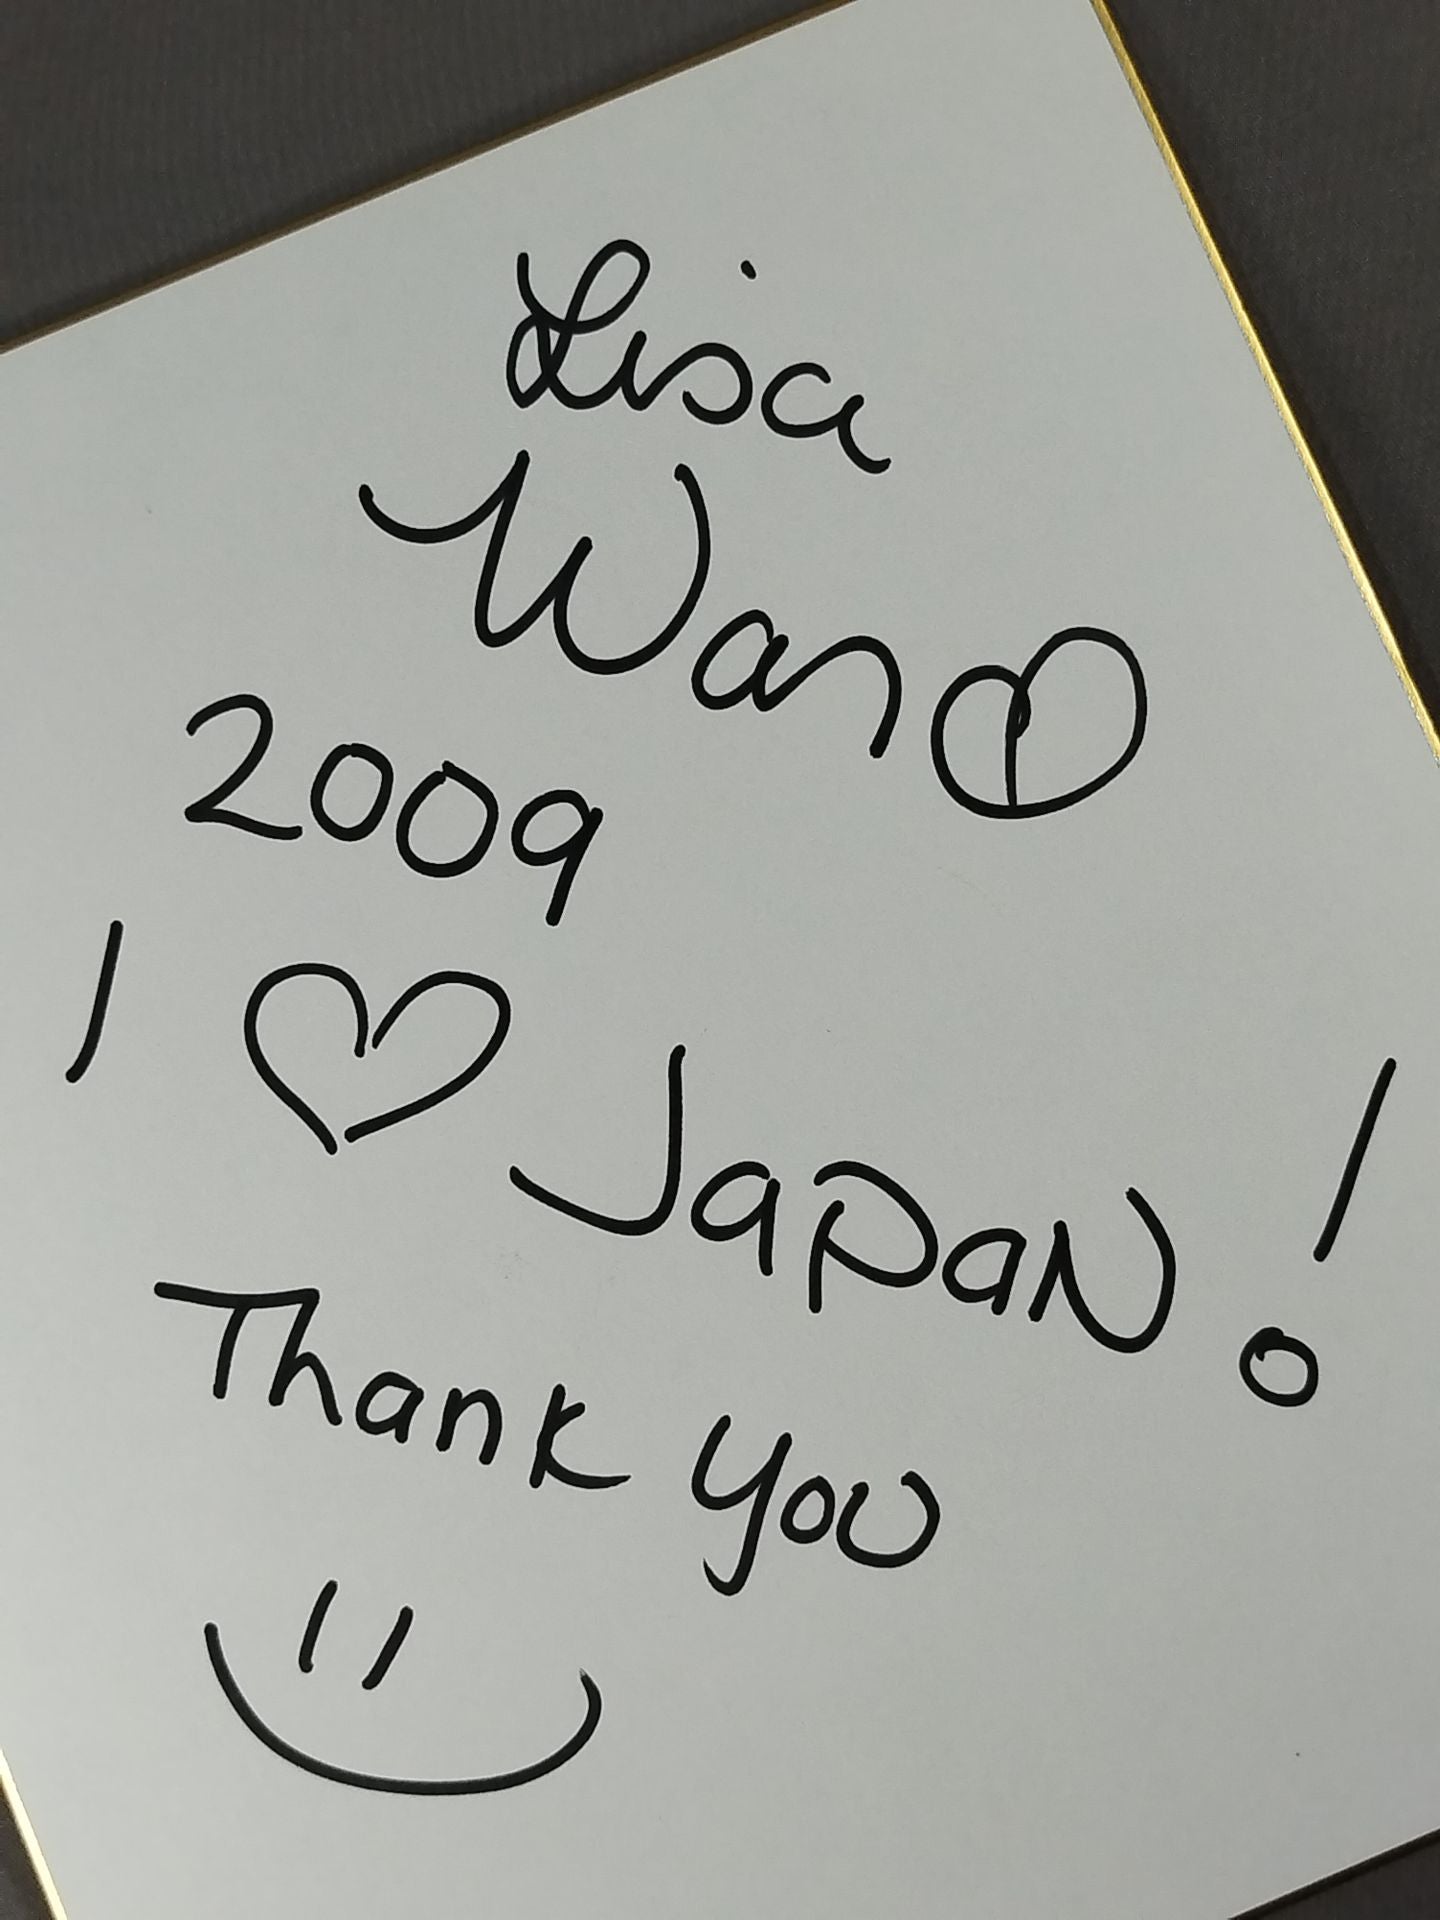 Lisa
Ward
2009
I ♡ Japan!
Thank you